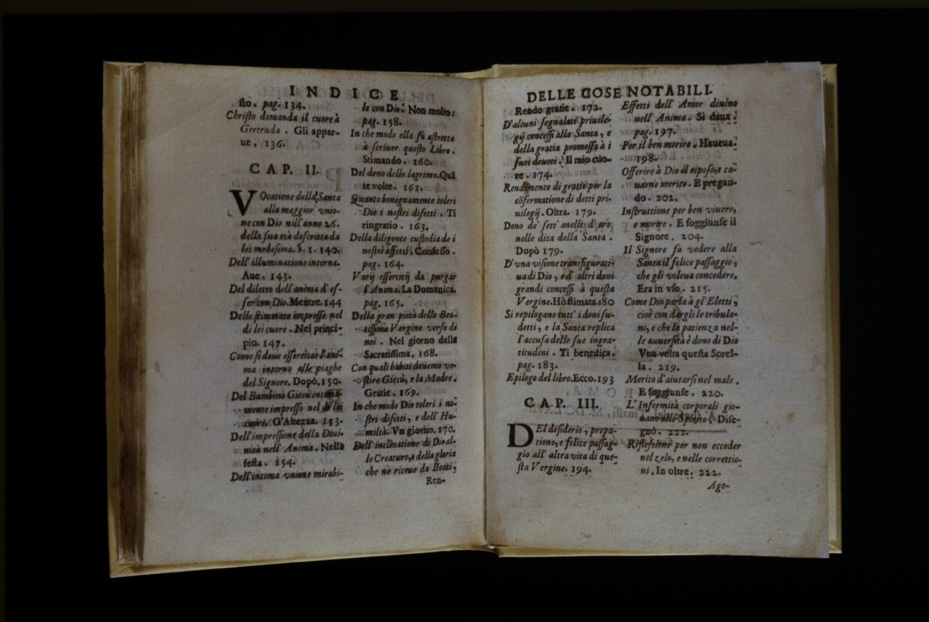 INDICE
sto. pag. 134.
Christo domanda il cuore à
Gertruda. Gli appar-
ue. 136.
CAP. II.
VOcatione della Santa
alla maggior vnio-
ne con Dio nell'anno 26.
della sua età descritta da
lei medesima. S. 1. 140.
Dell'illuminatione interna.
Aue. 143.
Del diletto dell'anima d'es-
ser con Dio. Mentre. 144
Delle stimmate impresse nel
di lei cuore. Nel princi-
pio. 147.
Come si deue essercitar l'ani-
ma intorno alle piaghe
del Signore. Dopò. 150.
Del Bambino Giesù intima-
mente impresso nel di lei
cuore. O'Altezza. 153.
Dell'impressione della Diui-
nità nell'Anima. Nella
festa. 154.
Dell'intima vnione mirabi-
le con Dio. Non molto.
pag. 158.
In che modo ella fù astretta
à scriuer questo Libro.
Stimando. 160.
Del dono delle lagrime. Qual
te volte. 161.
Quanto benignamente toleri
Dio i nostri difetti. Ti
ringratio. 163.
Della diligente custodia de i
nostri affetti. Confesso.
pag. 164.
Varij essercitij da purgar
l'Anima. La Domenica.
pag. 165.
Della gran pietà della Bea-
tissima Vergine verso di
noi. Nel giorno della
Sacratissima. 168.
Con quali habiti deuemo ve-
stire Giesù, e la Madre.
Gratie. 169.
In che modo Dio toleri i no-
stri difetti, e dell'Hu-
miltà. Vn giorno. 170.
Dell'inclinatione di Dio al-
le Creature, e della gloria
che ne riceue da Beati,
Ren-
DELLE COSE NOTABILI.
Rendo gratie. 172.
D'alcuni segnalati priuile-
gij concessi alla Santa, e
della gratia promessa à i
suoi deuoti. Il mio cuo-
re. 174.
Rendimento di gratie per la
cōfermatione di detti pri-
uilegij. Oltra. 179.
Dono de' sett'anelli d'oro
nelle dita della Santa.
Dopò 179.
D'vna visione transfigurati-
ua di Dio, e d'altri doni
grandi concessi à questa
Vergine. Hò stimata. 180
Si repilogano tutt'i doni su-
detti, e la Santa replica
l'accusa delle sue ingra-
titudini. Ti benedica.
pag. 183.
Epilogo del libro. Ecco. 193
CAP. III.
DEl desiderio, prepa-
tione, e felice passag-
gio all'altra vita di que-
sta Vergine. 194.
Effetti dell'Amor diuino
nell'Anima. Si daua.
pag. 197.
Per il ben morire. Haueua.
198.
Offerire à Dio il riposo, e ca-
uarne merito. E pregan-
do. 202.
Instruttione per ben viuere,
e morire. E soggiunse il
Signore. 204.
Il Signore fa vedere alla
Santa il felice passaggio,
che gli voleua concedere.
Era in vso. 215.
Come Dio parla à gl'Eletti,
cioè con dargli le tribula-
ni, e che la patienza nel-
le auuersità è dono di Dio
Vna volta questa Sorel-
la. 219.
Merito d'aiutarsi nel male.
E soggiunse. 220.
L'Infermità corporali gio-
nano allo Spirito. Dise-
gnò. 221.
Riflessione per non ecceder
nel zelo, e nelle correttio-
ni. In oltre. 222.
Ago-